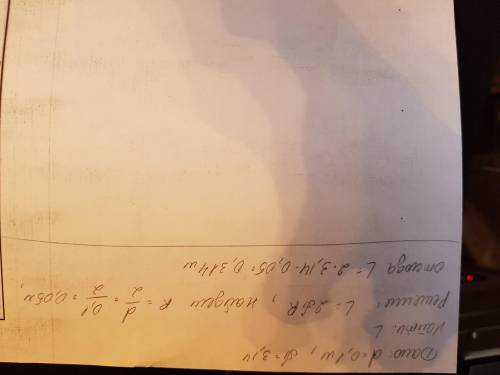 Дано: d = 0,1 м, π = 3,14
Найти: L
Решение: L = 2πR, найдем R = d/2 = 0,1/2 = 0,05 м,
отсюда L = 2 · 3,14 · 0,05 = 0,314 м